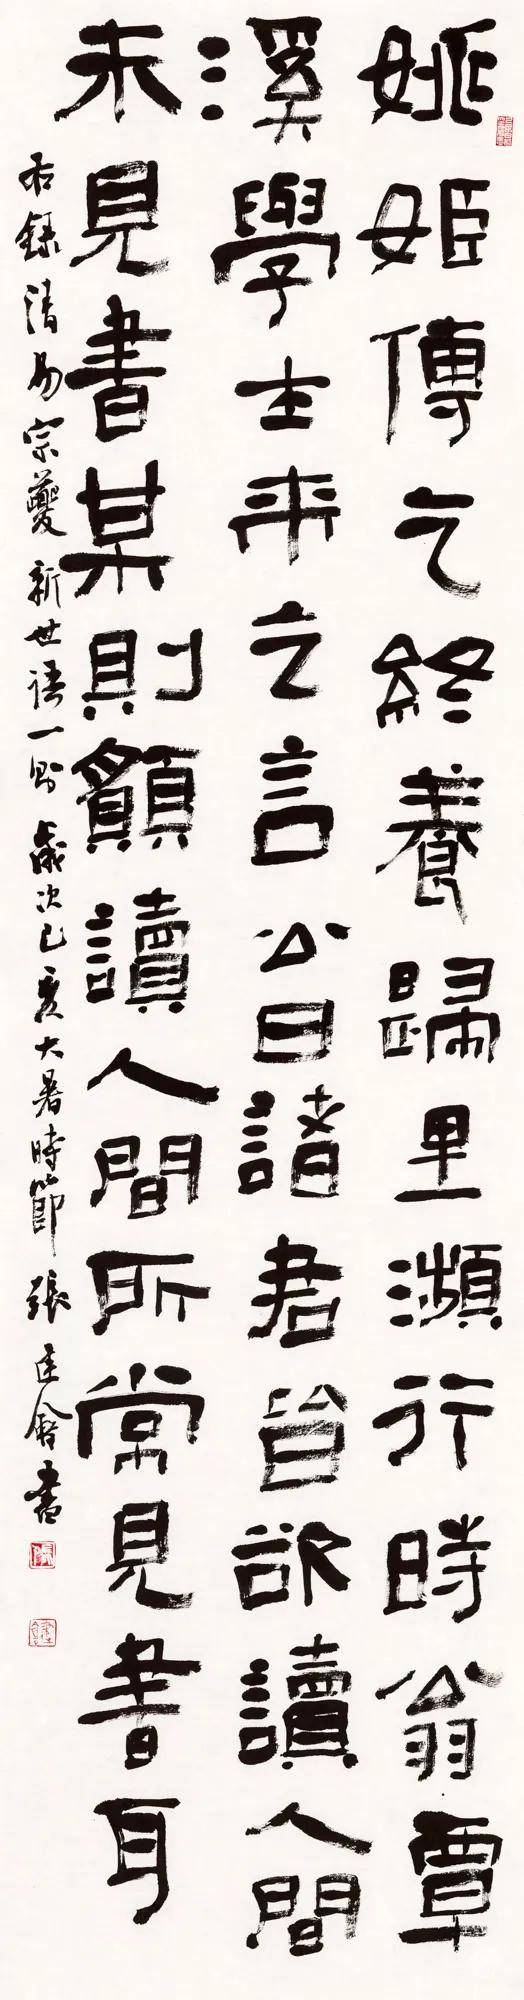 姚姬傳之終養歸里瀕行時翁覃
溪學士來之言公曰諸君皆欲讀人間
未見書某則顧讀人間所常見書耳
右錄清易宗夔新世語一則 歲次己亥大暑時節 張
書